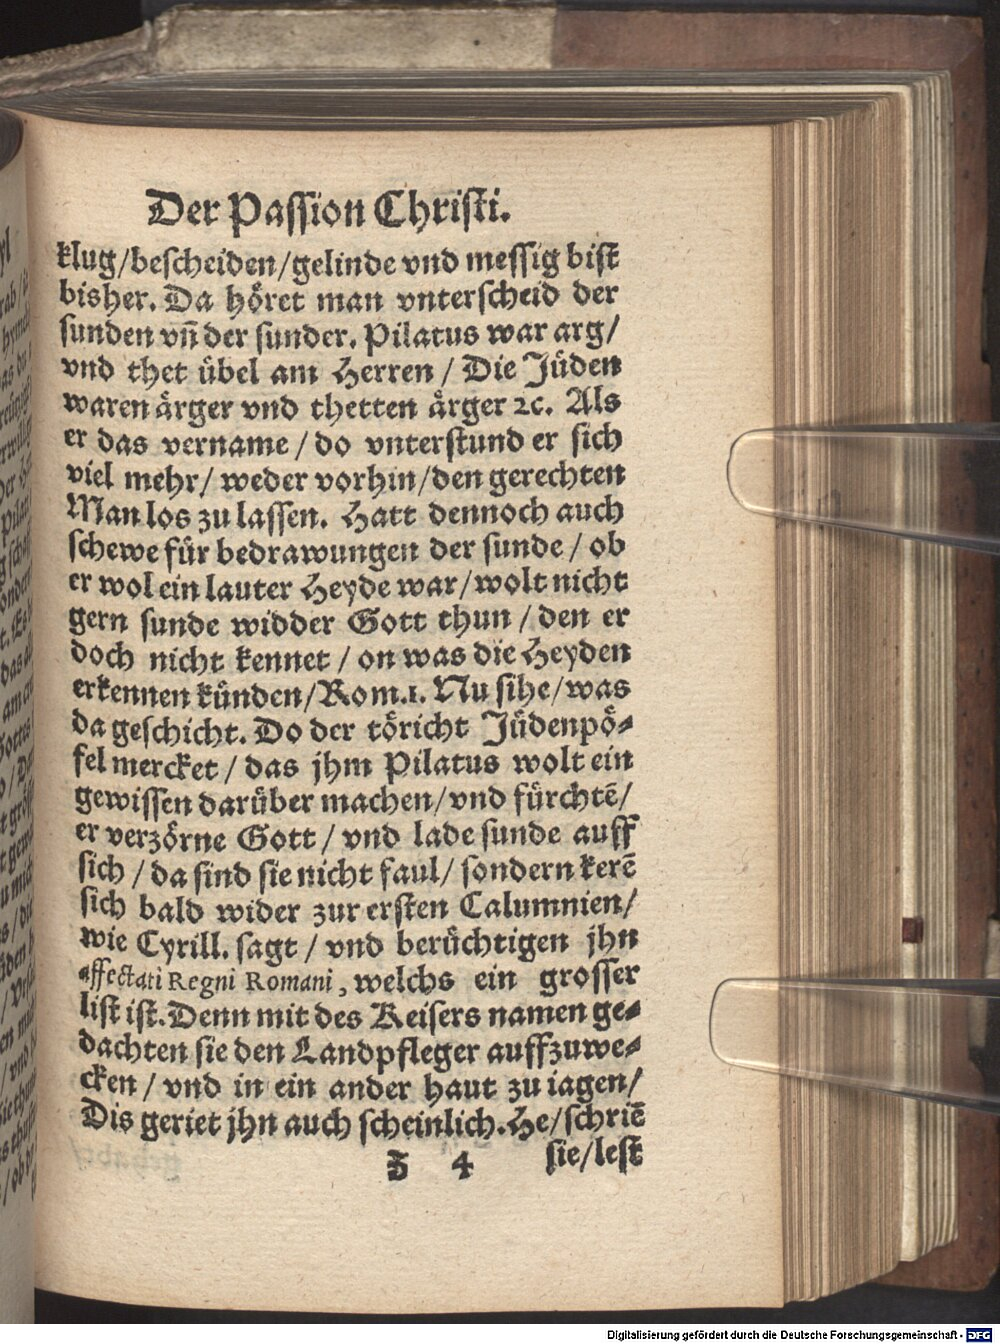 Der Passion Christi.
klug/bescheiden/gelinde vnd messig bist
bisher. Da höret man vnterscheid der
sunden vñ der sunder. Pilatus war arg/
vnd thet übel am Herren / Die Jüden
waren ärger vnd thetten ärger ⁊c. Als
er das vername / do vnterstund er sich
viel mehr/ weder vorhin/den gerechten
Man los zu lassen. Hatt dennoch auch
schewe für bedrawungen der sunde / ob
er wol ein lauter Heyde war/wolt nicht
gern sunde widder Gott thun / den er
doch nicht kennet / on was die Heyden
erkennen künden/Rom.1. Nu sihe/was
da geschicht. Do der töricht Jüdenpö-
fel mercket / das jhm Pilatus wolt ein
gewissen darüber machen/vnd fürchtē/
er verzörne Gott / vnd lade sunde auff
sich / da sind sie nicht faul/ sondern kerē
sich bald wider zur ersten Calumnien/
wie Cyrill. sagt / vnd berüchtigen jhn
affectati Regni Romani, welchs ein grosser
list ist. Denn mit des Keisers namen ge-
dachten sie den Landpfleger auffzuwe-
cken / vnd in ein ander haut zu iagen/
Dis geriet jhn auch scheinlich. He/schriē
sie/lest
4
Digitalisierung gefördert durch die Deutsche Forschungsgemeinschaft - DFG